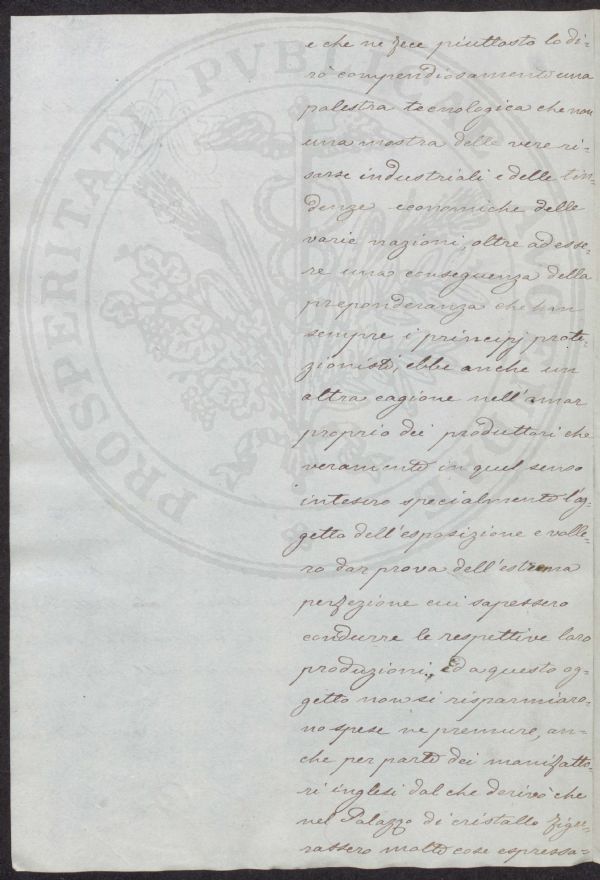 e che ne fece piuttosto lo di-
rò compendiosamente una
palestra tecnologica che non
una mostra delle vere ri-
sorse industriali e delle ten-
denze economiche delle
varie nazioni, oltre ad esse-
re una conseguenza della
preponderanza che
sempre i principj prote-
zionisti, ebbe anche un
altra cagione nell'amor
proprio dei produttori che
veramente in quel senso
intesero specialmente l'og-
getto dell'esposizione e volle-
ro dar prova dell'estrema
perfezione cui sapessero
condurre le respettive loro
produzioni. Ed a questo og-
getto non si risparmiaro-
no spese ne premure, an-
che per parte dei manifatto-
ri inglesi dal che derivò che
nel Palazzo di cristallo figu-
rassero molte cose espressa-
PROSPERITATI PVBLICAE